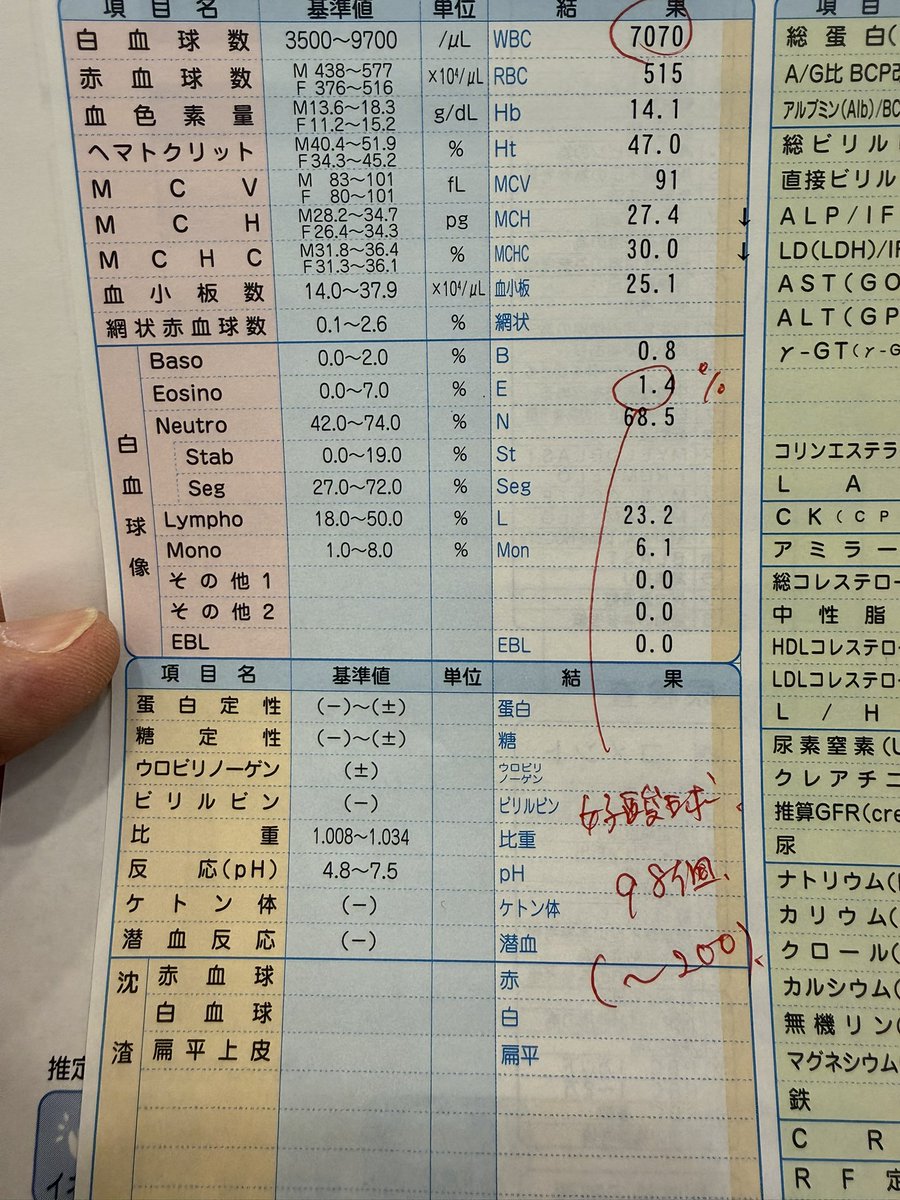 項目名 基準値 単位 結果
白血球数 3500～9700 /μL WBC 7070
赤血球数 M 438～577 F 376～516 ×10⁴/μL RBC 515
血色素量 M13.6～18.3 F11.2～15.2 g/dL Hb 14.1
ヘマトクリット M40.4～51.9 F34.3～45.2 % Ht 47.0
MCV M 83～101 F 80～101 fL MCV 91
MCH M28.2～34.7 F26.4～34.3 pg MCH 27.4 ↓
MCHC M31.8～36.4 F31.3～36.1 % MCHC 30.0 ↓
血小板数 14.0～37.9 ×10⁴/μL 血小板 25.1
網状赤血球数 0.1～2.6 % 網状
白血球像
Baso 0.0～2.0 % B 0.8
Eosino 0.0～7.0 % E 1.4 %
Neutro 42.0～74.0 % N 68.5
Stab 0.0～19.0 % St
Seg 27.0～72.0 % Seg
Lympho 18.0～50.0 % L 23.2
Mono 1.0～8.0 % Mon 6.1
その他1 0.0
その他2 0.0
EBL EBL 0.0
項目名 基準値 単位 結果
蛋白定性 (－)～(±) 蛋白
糖定性 (－)～(±) 糖
ウロビリノーゲン (±) ウロビリノーゲン
ビリルビン (－) ビリルビン
比重 1.008～1.034 比重
反応(pH) 4.8～7.5 pH
ケトン体 (－) ケトン体
潜血反応 (－) 潜血
好酸球
98個
(～200)
沈渣
赤血球 赤
白血球 白
扁平上皮 扁平
推定
項目
総蛋白(
A/G比 BCP
アルブミン(Alb)/BC
総ビリル
直接ビリル
ALP/IF
LD(LDH)/IF
AST(GO
ALT(GP
γ-GT(γ-G
コリンエステラ
LA
CK(CP
アミラー
総コレステロー
中性脂
HDLコレステロー
LDLコレステロー
L/H
尿素窒素(U
クレアチニ
推算GFR(cre
尿
ナトリウム(
カリウム(
クロール(
カルシウム(
無機リン(
マグネシウム(
鉄
CR
RF定